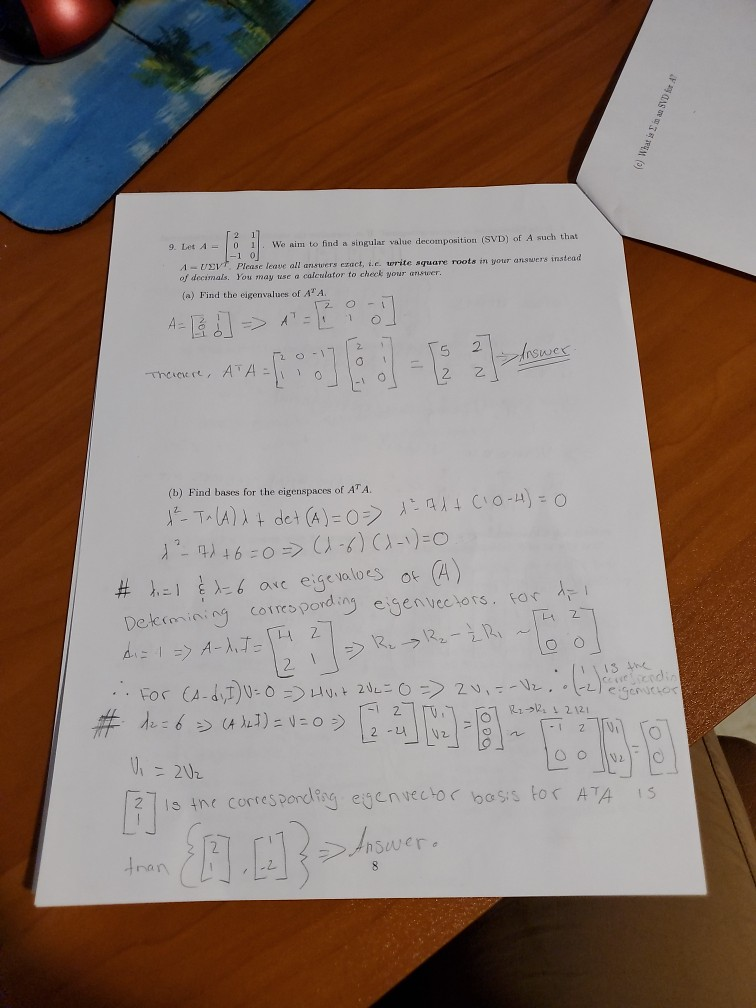 (c) What is Σ in an SVD for A?
9. Let A = [2 1; 0 1; -1 0]. We aim to find a singular value decomposition (SVD) of A such that
A = UΣVᵀ. Please leave all answers exact, i.e. write square roots in your answers instead
of decimals. You may use a calculator to check your answer.
(a) Find the eigenvalues of AᵀA.
A = [2 1; 0 1; -1 0] => Aᵀ = [2 0 -1; 1 1 0]
Therefore, AᵀA = [2 0 -1; 1 1 0] [2 1; 0 1; -1 0] = [5 2; 2 2] => Answer
(b) Find bases for the eigenspaces of AᵀA.
λ² - Tr(A)λ + det(A) = 0 => λ² - 7λ + (10-4) = 0
λ² - 7λ + 6 = 0 => (λ-6)(λ-1) = 0
# λ₁=1 & λ=6 are eigevalues of (A)
Determining corresponding eigenvectors. For λ₁=1
λ₁=1 => A-λ₁I = [4 2; 2 1] => R₂ → R₂ - ½R₁ ~ [4 2; 0 0]
∴ For (A-λ₁I)V=0 => 4V₁ + 2V₂ = 0 => 2V₁ = -V₂. ∴ (1; -2) is the eigenvector
# λ₂=6 => (A λ₂I) = V = 0 => [-1 2; 2 -4] [V₁; V₂] = [0; 0; 0] R₂→R₂ + 2R₁ ~ [-1 2; 0 0] [V₁; V₂] = [0; 0]
V₁ = 2V₂
[2; 1] is the corresponding eigenvector basis for AᵀA is
than {[2; 1], [1; -2]} => Answer.
8